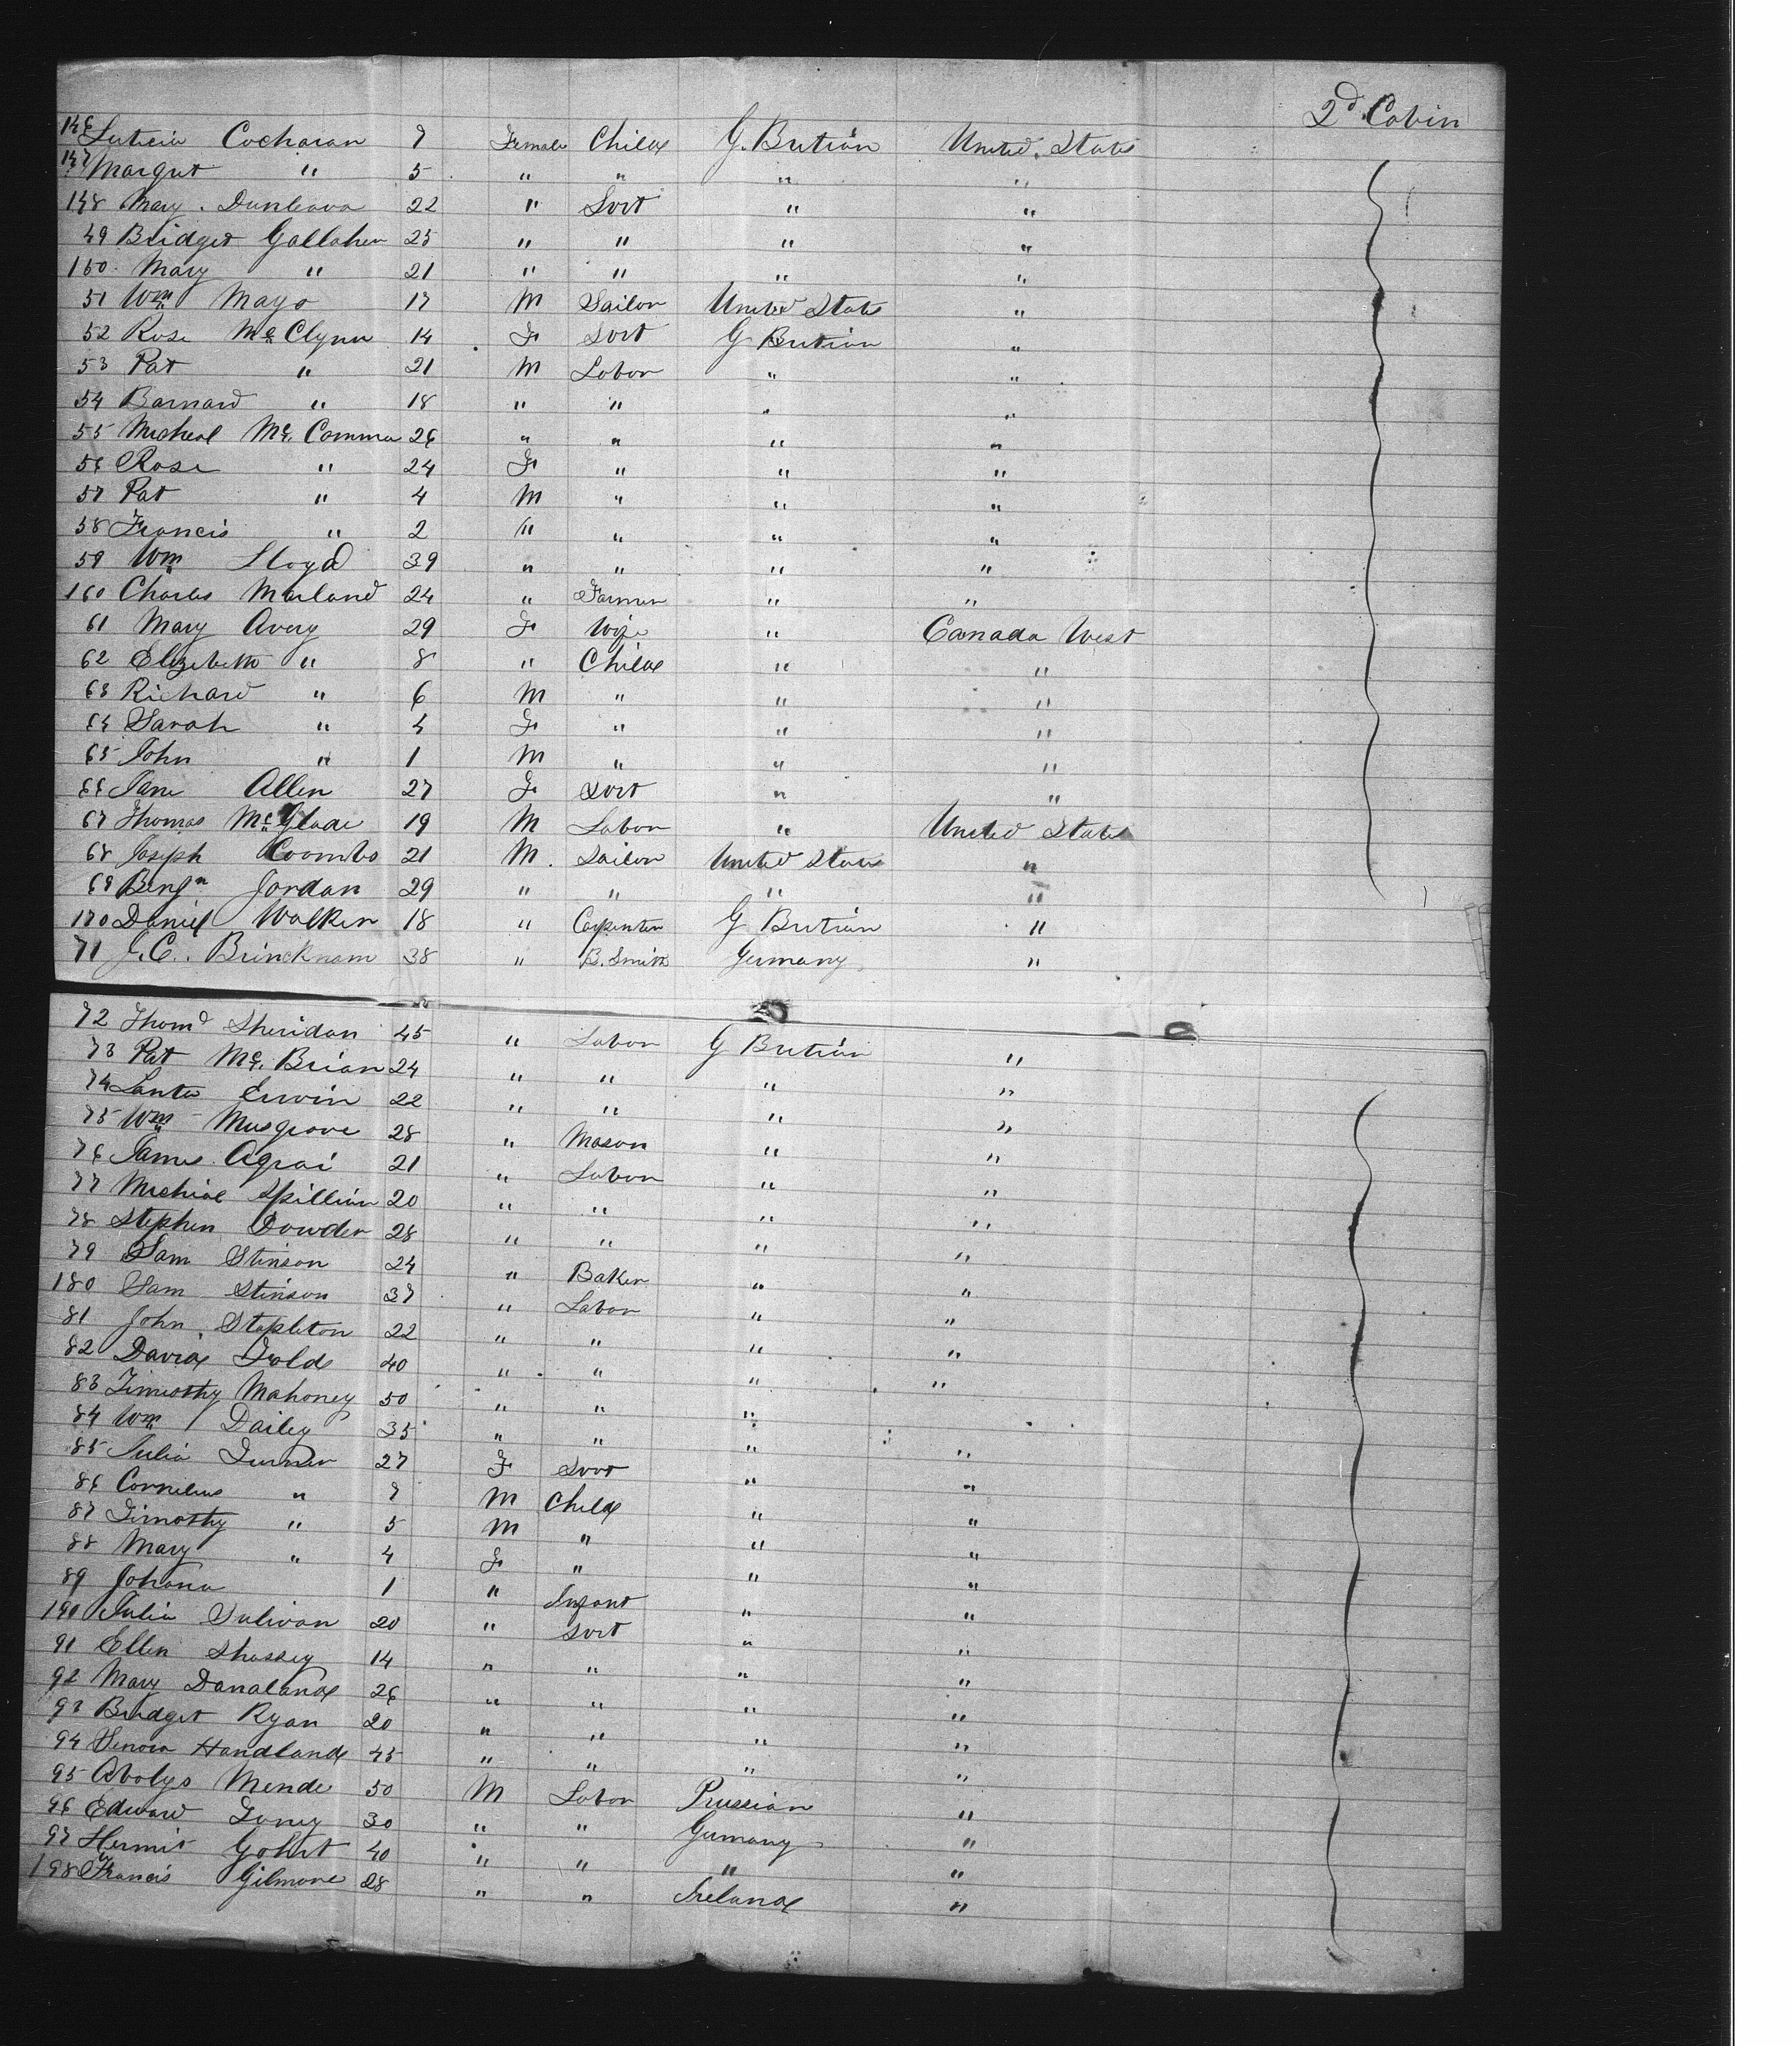 2d Cabin
146 Luticia Cocharan 7 Female Child G. Britian United States
147 Margret " 5 " " " "
148 Mary Dunleava 22 " Svst " "
49 Bridget Gallaher 25 " " " "
150 Mary " 21 " " " "
51 Wm Mayo 17 M Sailor United States "
52 Rose McClynn 14 F Svst G Britian "
53 Pat " 21 M Labor " "
54 Barnard " 18 " " " "
55 Micheal Mc. Comma 26 " " " "
56 Rose " 24 F " " "
57 Pat " 4 M " " "
58 Francis " 2 " " " "
59 Wm Lloyd 39 " " " "
160 Charles Morland 24 " Farmer " "
61 Mary Avery 29 F Wife " Canada West
62 Elizebeth " 8 " Child " "
63 Richard " 6 M " " "
64 Sarah " 4 F " " "
65 John " 1 M " " "
66 Jane Allen 27 F Svst " "
67 Thomas McGlade 19 M Labor " United States
68 Joseph Coombs 21 M. Sailor United States "
69 Benjn Jordan 29 " " " "
170 Daniel Walker 18 " Carpenter G Britian "
71 J. C. Brincknam 38 " B. Smith Germany "
72 Thomd Sheridan 45 " Labor G Britian "
73 Pat Mc. Brian 24 " " " "
74 Erwin 22 " " " "
75 Wm Musgrove 28 " Mason " "
76 James 21 " Labor " "
77 Michial Spillian 20 " " " "
78 Stephen Dowder 28 " " " "
79 Sam Stinson 24 " Baker " "
180 Sam Stinson 37 " Labor " "
81 John Stapleton 22 " " " "
82 David Fold 40 " " " "
83 Timothy Mahoney 50 " " "
84 Wm Dailey 35 " " " "
85 Julia Turner 27 F Svst " "
86 Cornelius " 7 M Child " "
87 Timothy " 5 M " " "
88 Mary " 4 F " " "
89 Johana 1 " Infant " "
190 Julia Sulivan 20 " Svst " "
91 Ellen 14 " " " "
92 Mary Danaland 26 " " " "
93 Bridget Ryan 20 " " " "
94 Henora Handland 45 " " " "
95 Mende 50 M Labor Prussian "
96 Edward 30 " " Germany "
97 Hermit Gohrt 40 " " " "
198 Francis Gilmore 28 " " Ireland "